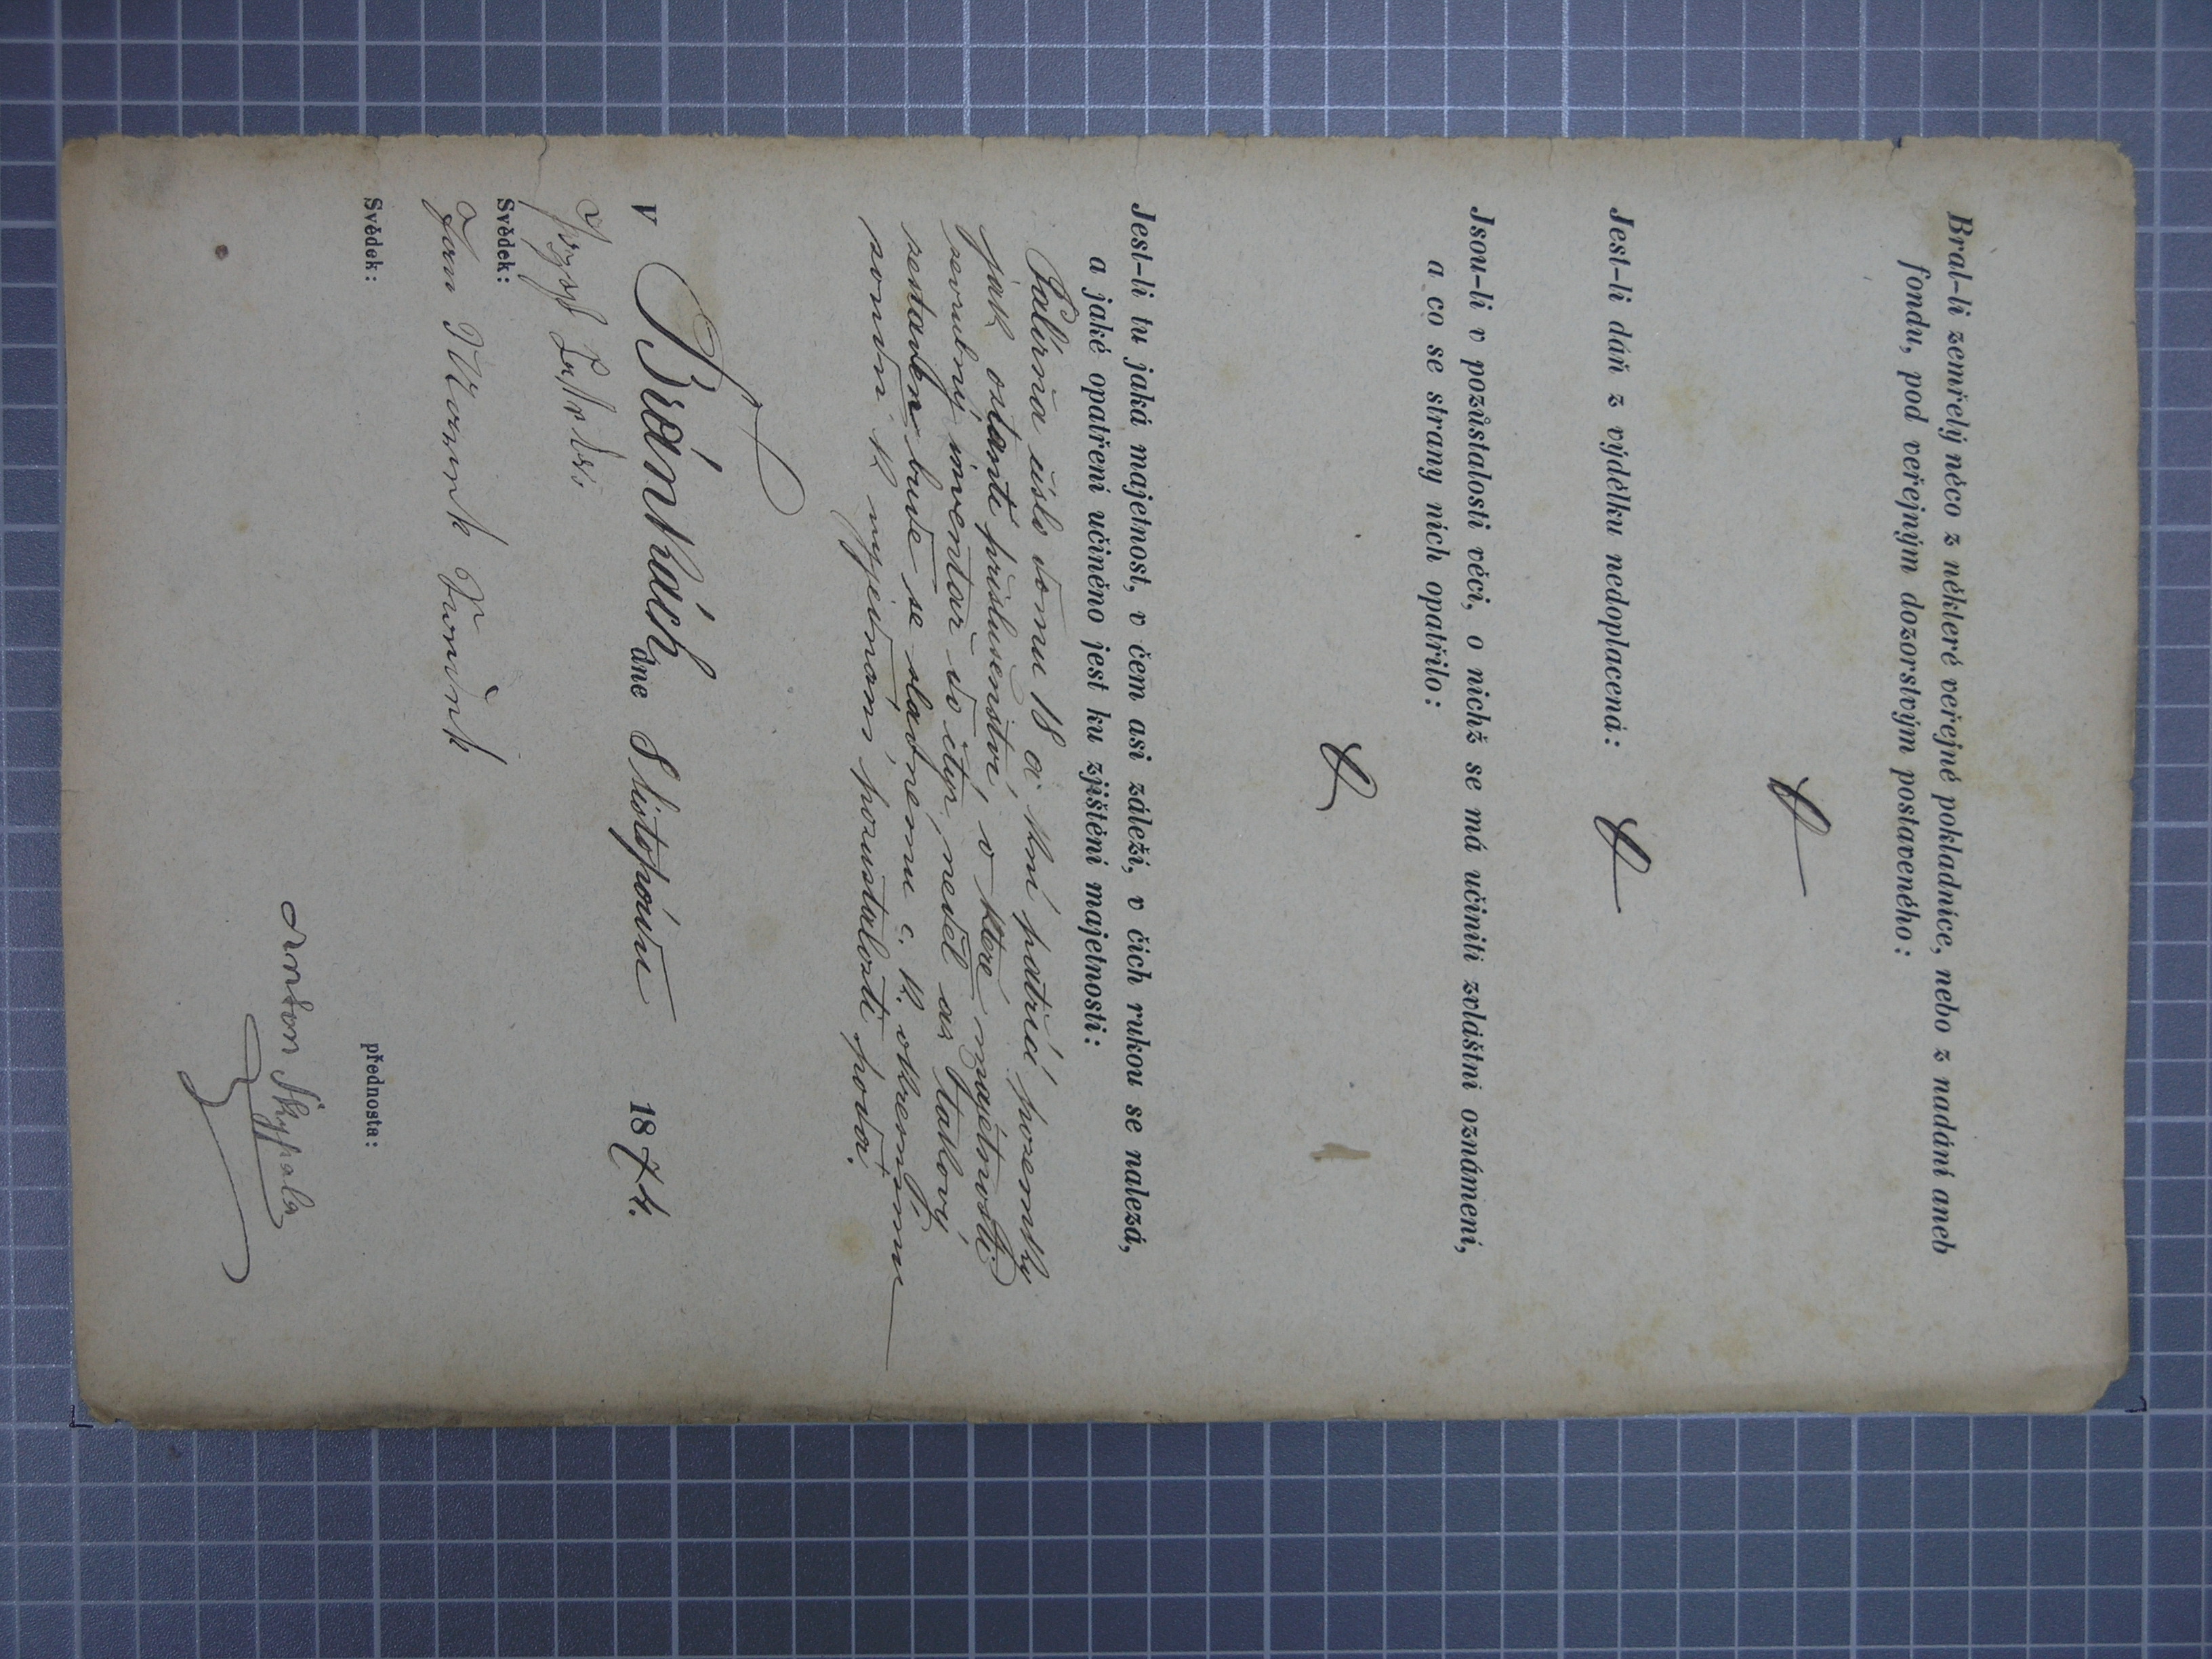 Bral-li zemřelý něco z některé veřejné pokladnice, nebo z nadání aneb
fondu, pod veřejným dozorstvým postaveného:
Jest-li dáň z výdělku nedoplacená:
Jsou-li v pozůstalosti věci, o nichž se má učiniti zvláštní oznámení,
a co se strany nich opatřilo:
Jest-li tu jaká majetnost, v čem asi záleží, v čich rukou se nalezá,
a jaké opatření učiněno jest ku zjištění majetnosti:
číslo domu 18 a kní patřící pozemky
jak ostantí příslušenství, o které majetnosti
inventář do čtyr neděl as takový
sestaven bude se slavnemu c. k. okresnímu
soudu k vyjednání pozustalosti podá.
V Bránkách dne 8 listopadu 1874.
Josef
Svědek:
Jan
Svědek:
přednosta:
Anton Skypala